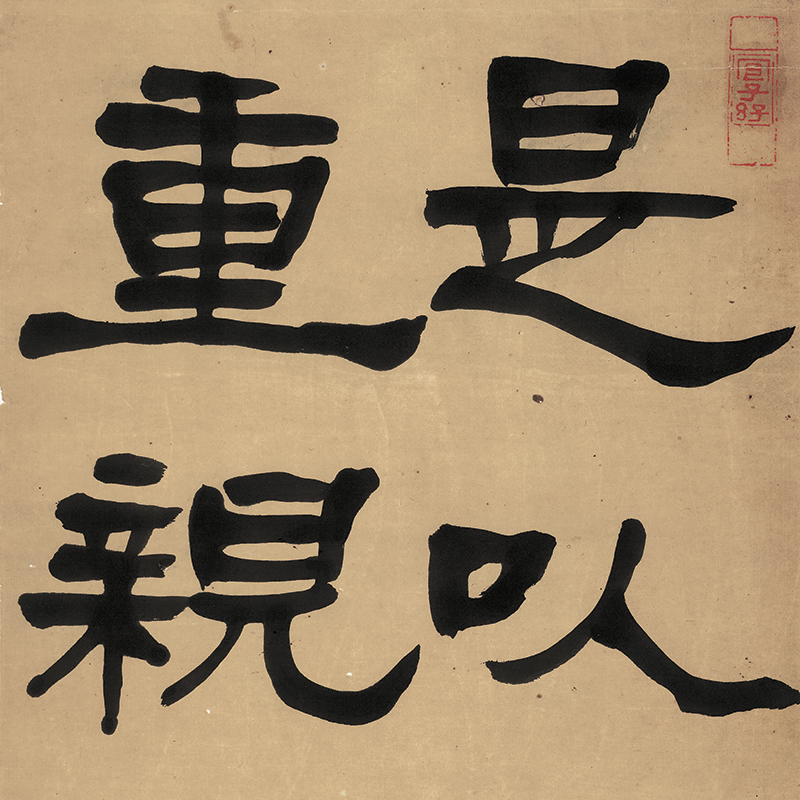 是以
重親